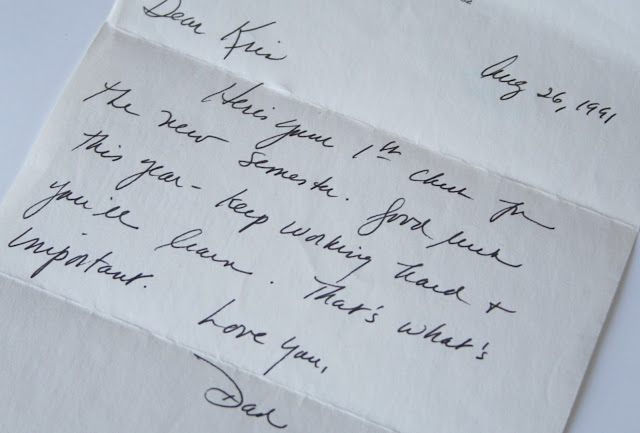 Dear Kris
Aug 26, 1991
Here's your 1st check for
the new semester. Good luck
this year - keep working hard +
you'll learn. That's what's
important.
Love you,
Dad